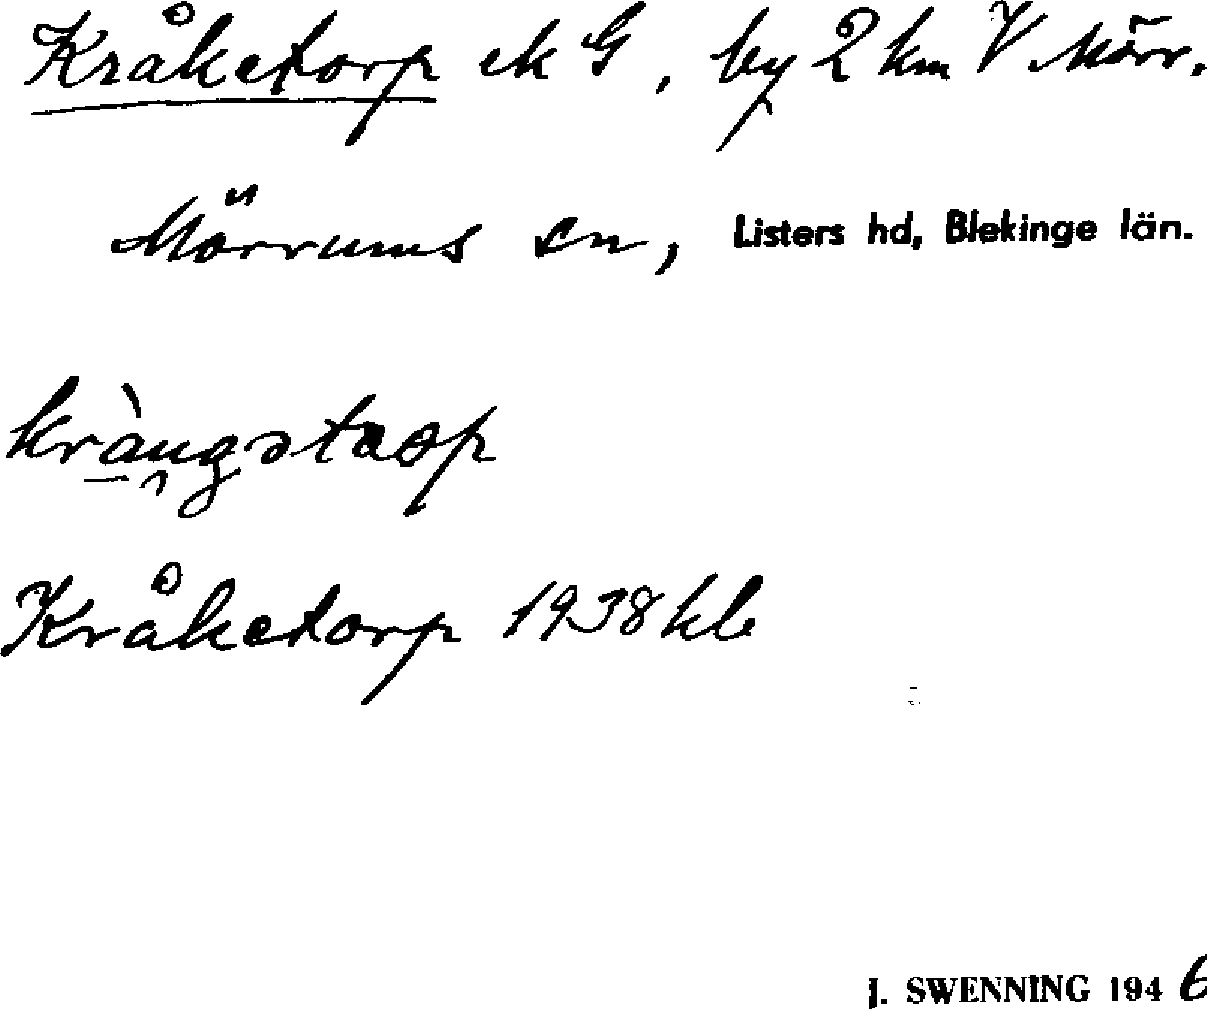 Kråketorp ek G, by 2 km V Mörr.
Mörrums sn, Listers hd, Blekinge län.
Kråketorp 1938 kb
J. SWENNING 1946